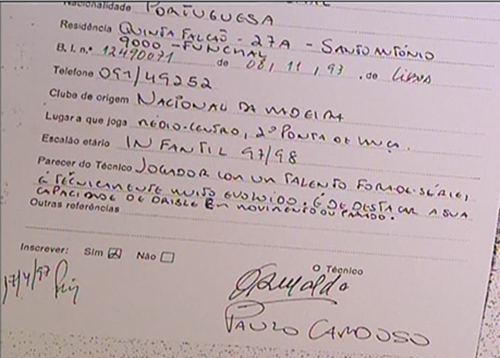 Nacionalidade PORTUGUESA
Residência QUINTA FALCÃO - 27A - SANTO ANTÓNIO
9000 - FUNCHAL
B. I. n.º 12490071 de 08, 11, 93, de Lisboa
Telefone 091/49252
Clube de origem NACIONAL DA MADEIRA
Lugar a que joga MÉDIO-CENTRO, 2º PONTA DE LANÇA.
Escalão etário INFANTIL 97/98
Parecer do Técnico JOGADOR COM UM TALENTO FORA-DE-SÉRIE,
E TÉCNICAMENTE MUITO EVOLUIDO. É DE DESTACAR A SUA
CAPACIDADE DE DRIBLE EM MOVIMENTO OU PARADO.
Outras referências
Inscrever: Sim Não
17/4/97
O Técnico
Osvaldo
PAULO CARDOSO